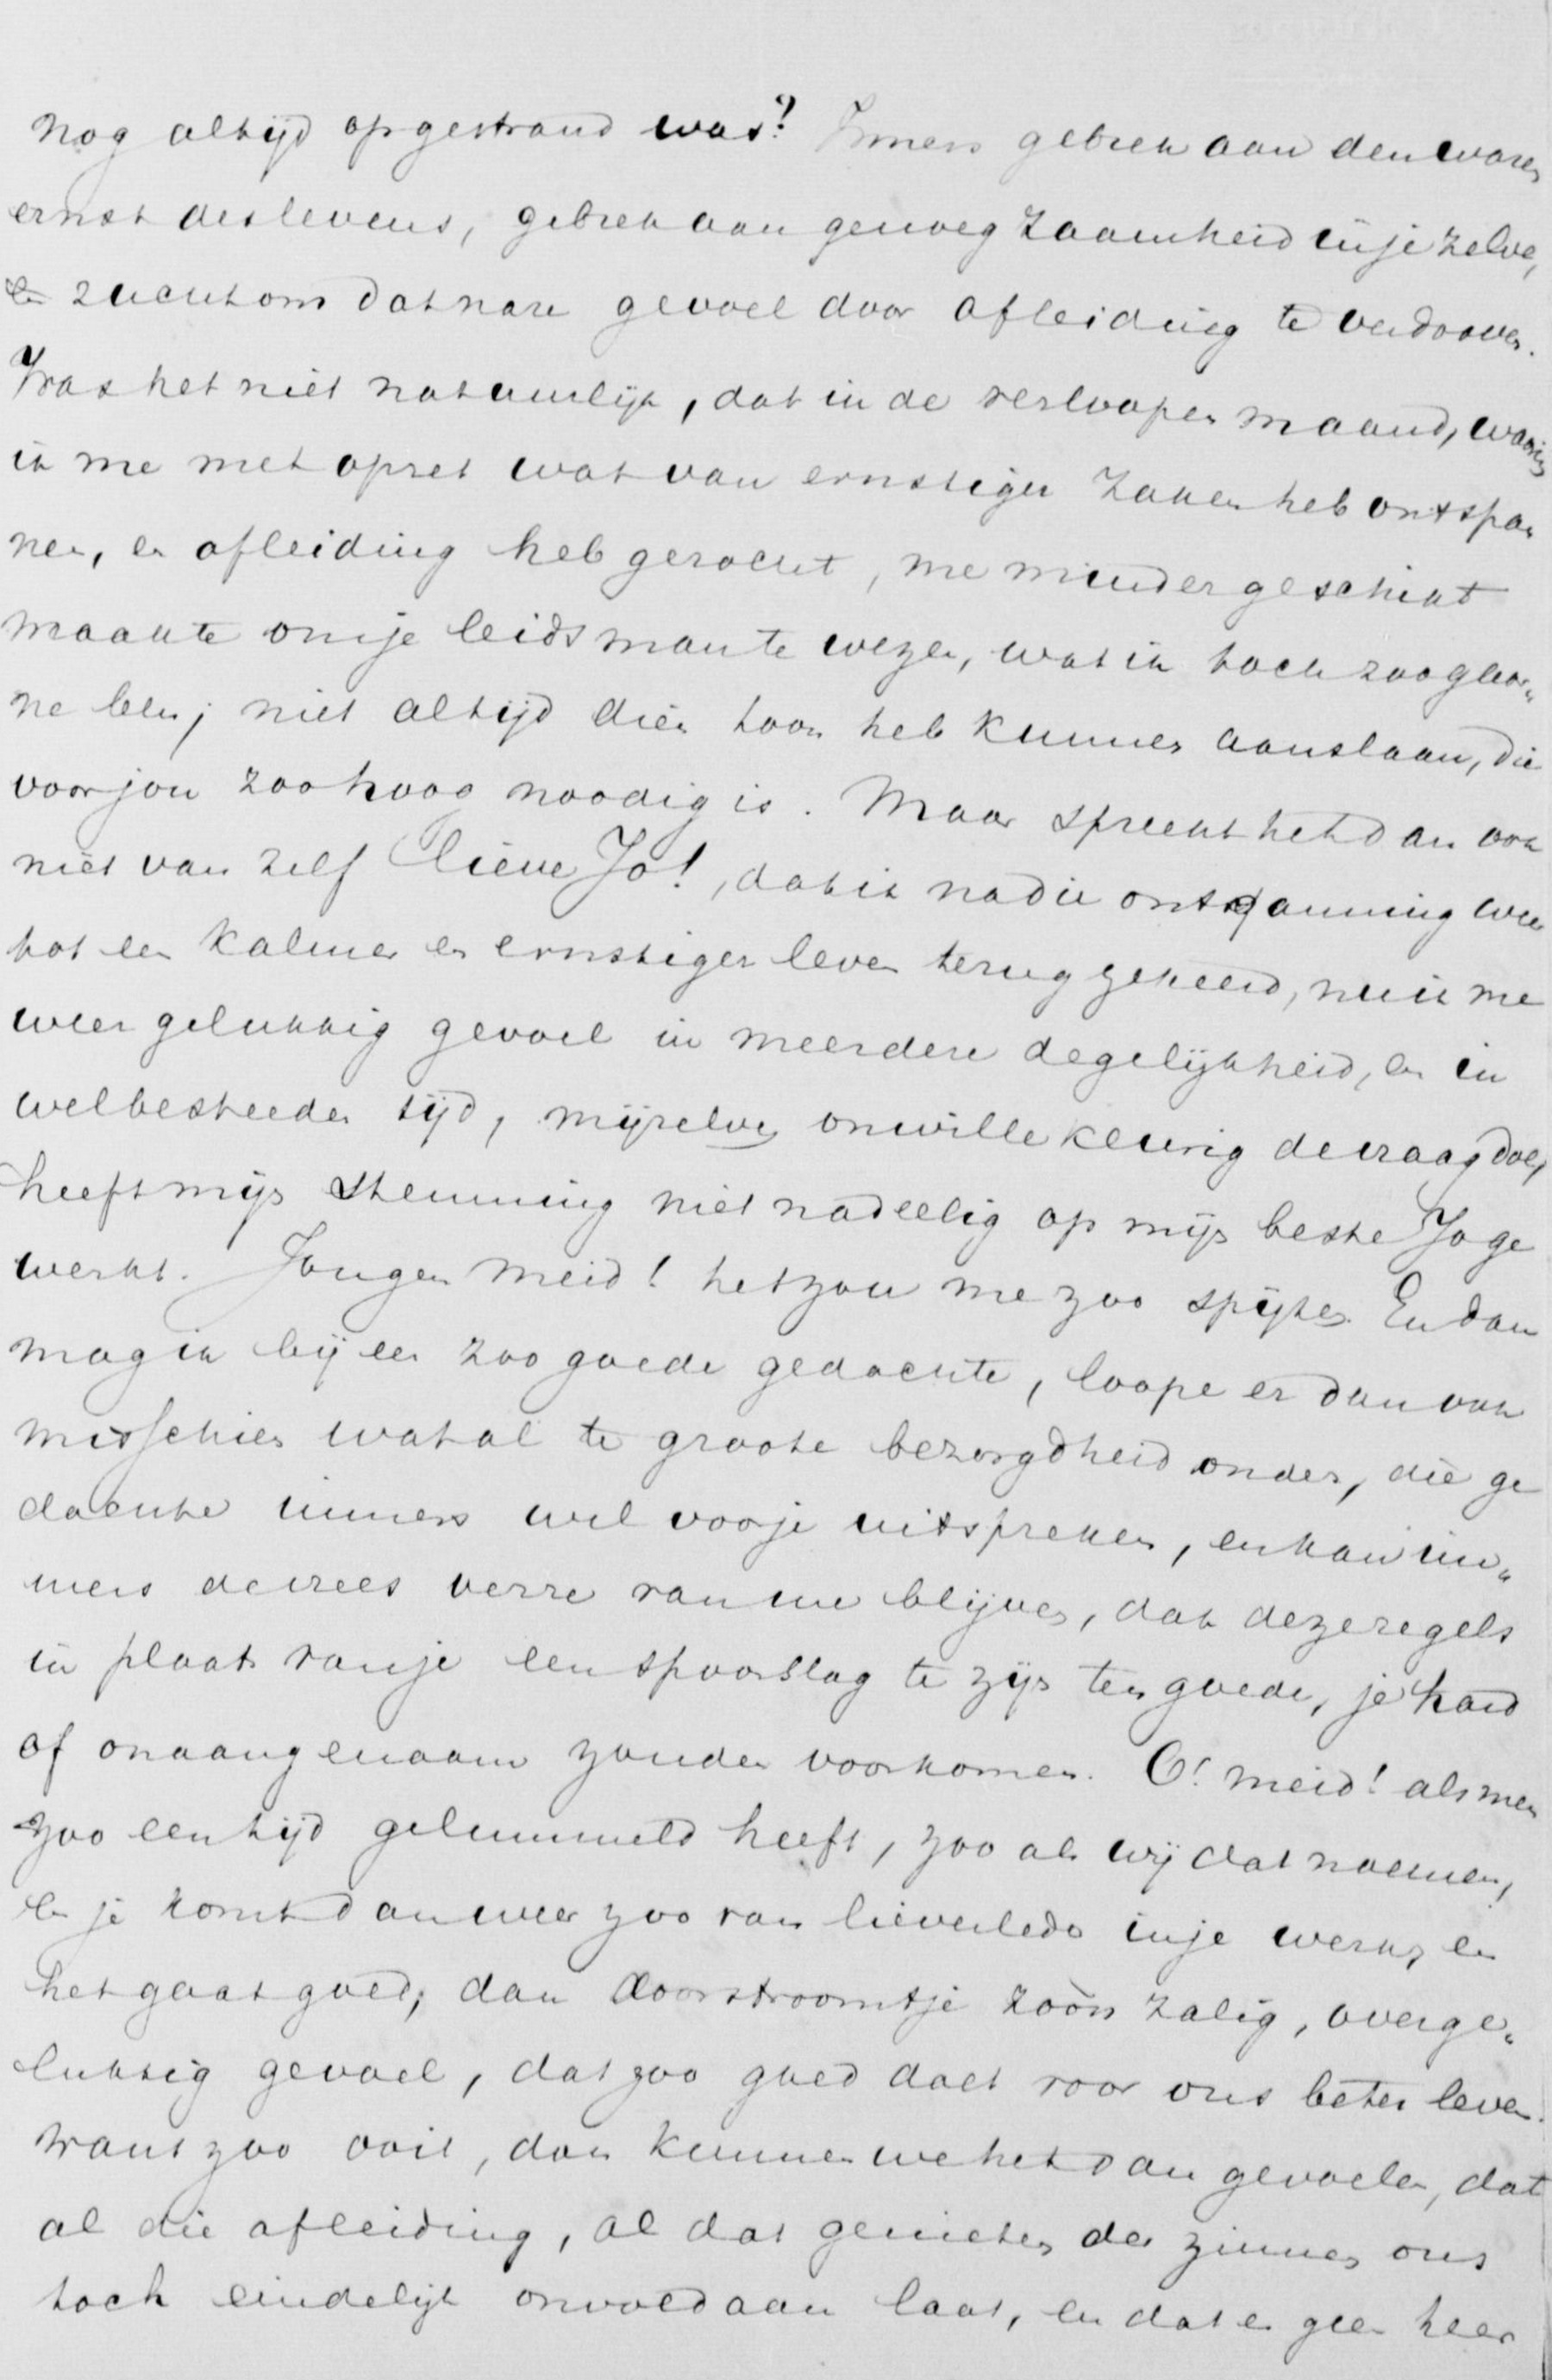 nog altijd op gestrand was? Immers gebrek aan den waren
ernst des levens, gebrek aan genoegzaamheid in je zelve,
en zucht om dat nare gevoel door afleiding te verdooven.
Was het niet natuurlijk, dat in de verloopen maand, waarin
ik me met opzet wat van ernstiger zaken heb ontspan
nen, en afleiding heb gezocht, me minder geschikt
maakte om je leidsman te wezen, wat ik toch zoo gaar„
ne ben; niet altijd dien toon heb kunnen aanslaan, die
voor jou zoo hoog noodig is. Maar spreekt het dan ook
niet van zelf lieve Jo!, dat ik na die ontspanning weer
tot een kalmer en ernstiger leven terug gekeerd, nu ik me
weer gelukkig gevoel in meerdere degelijkheid, en in
welbesteeden tijd, mijzelven onwillekeurig de vraag doe,
heeft mijn stemming niet nadeelig op mijn beste Jo ge
werkt. Jongen meid! het zou me zoo spijten. En dan
mag ik bij een zoo goede gedachte, loope er dan ook
misschien wat al te groote bezorgdheid onder, die ge
dachte immers wel voor je uitspreken, en kan im„
mers de vrees verre van me blijven, dat deze regels
in plaats van je een spoorslag te zijn ten goede, je hard
of onaangenaam zouden voorkomen. O! meid! als men
zoo een tijd gelummeld heeft, zoo als wij dat noemen,
en je komt dan weer zoo van lieverlede in je werk, en
het gaat goed; dan doorstroomt je zòò'n zalig, overge„
lukkig gevoel, dat zoo goed doet voor ons beter leven.
Want zoo ooit, dan kunnen we het dan gevoelen, dat
al die afleiding, al dat genieten der zinnen ons
toch eindelijk onvoldaan laat, en dat er geen heer